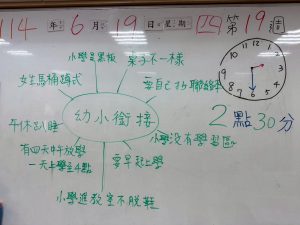 114年6月19日星期四第19週
小學是黑板
架子不一樣
女生馬桶蹲式
要自己抄聯絡本
幼小銜接
2點30分
午休趴睡
小學沒有學習區
有四天中午放學
一天上學至4點
要早起上學
小學進教室不脫鞋